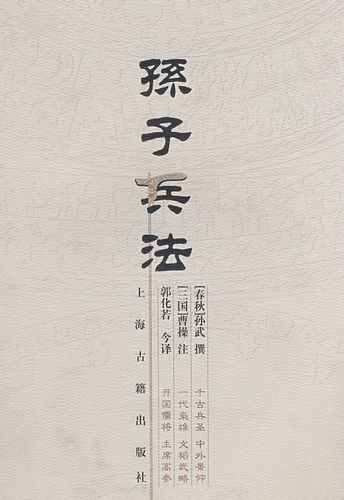 孫子兵法
[春秋]孙武 撰
千古兵圣 中外景仰
[三国]曹操 注
一代枭雄 文韬武略
郭化若 今译
开国儒将 主席高参
上海古籍出版社